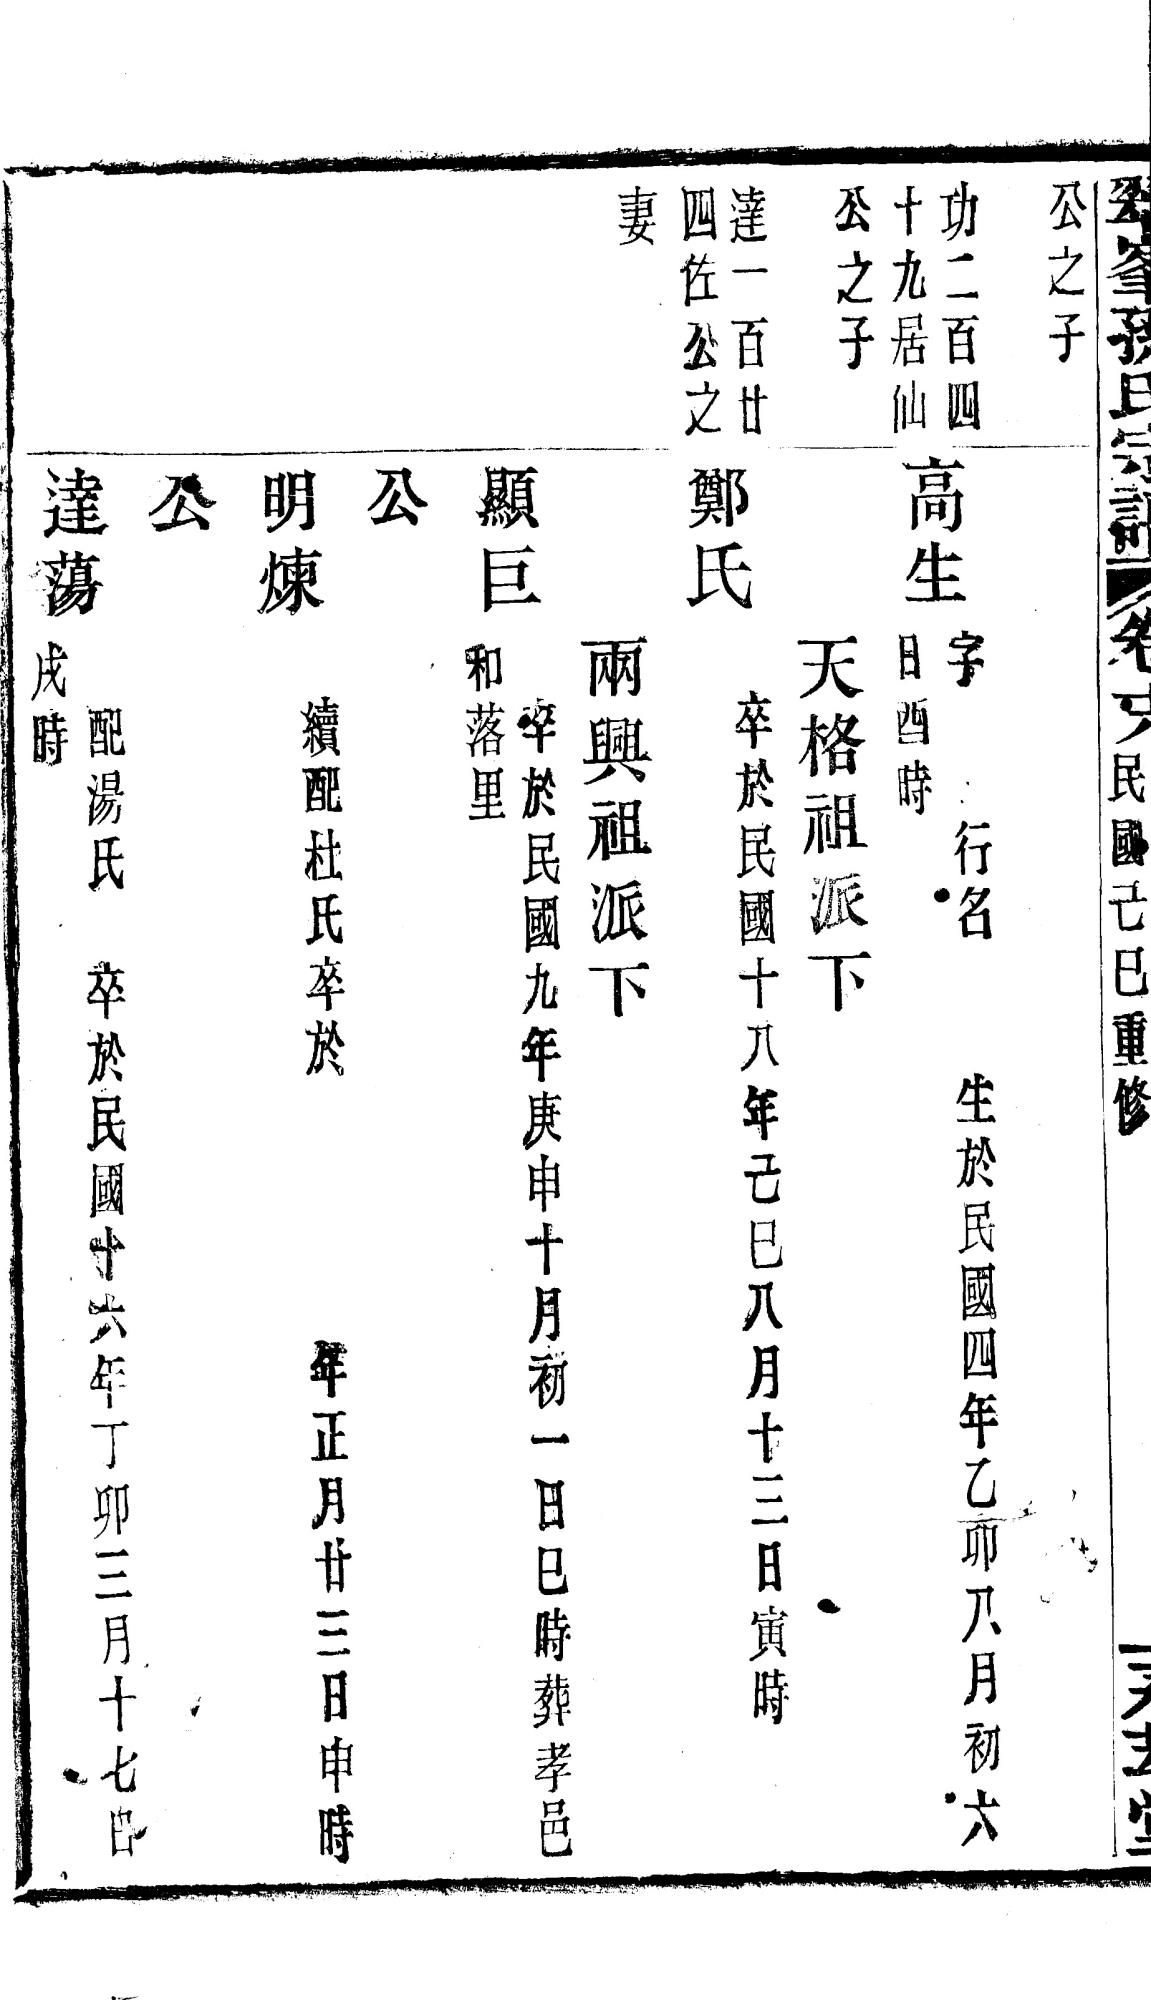 峯孫氏宗譜 卷 民國己巳重修
公之子
功二百四
十九居仙
公之子
達一百廿
四佐公之
妻
高生
字 行名 生於民國四年乙卯八月初六
日酉時
天格祖派下
鄭氏
卒於民國十八年己巳八月十三日寅時
兩興祖派下
顯巨
卒於民國九年庚申十月初一日巳時葬孝邑
和落里
公
明煉
續配杜氏卒於 年正月廿三日申時
公
達蕩
配湯氏 卒於民國十六年丁卯三月十七日
戌時